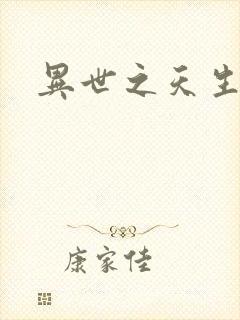 異世之天生
康家佳